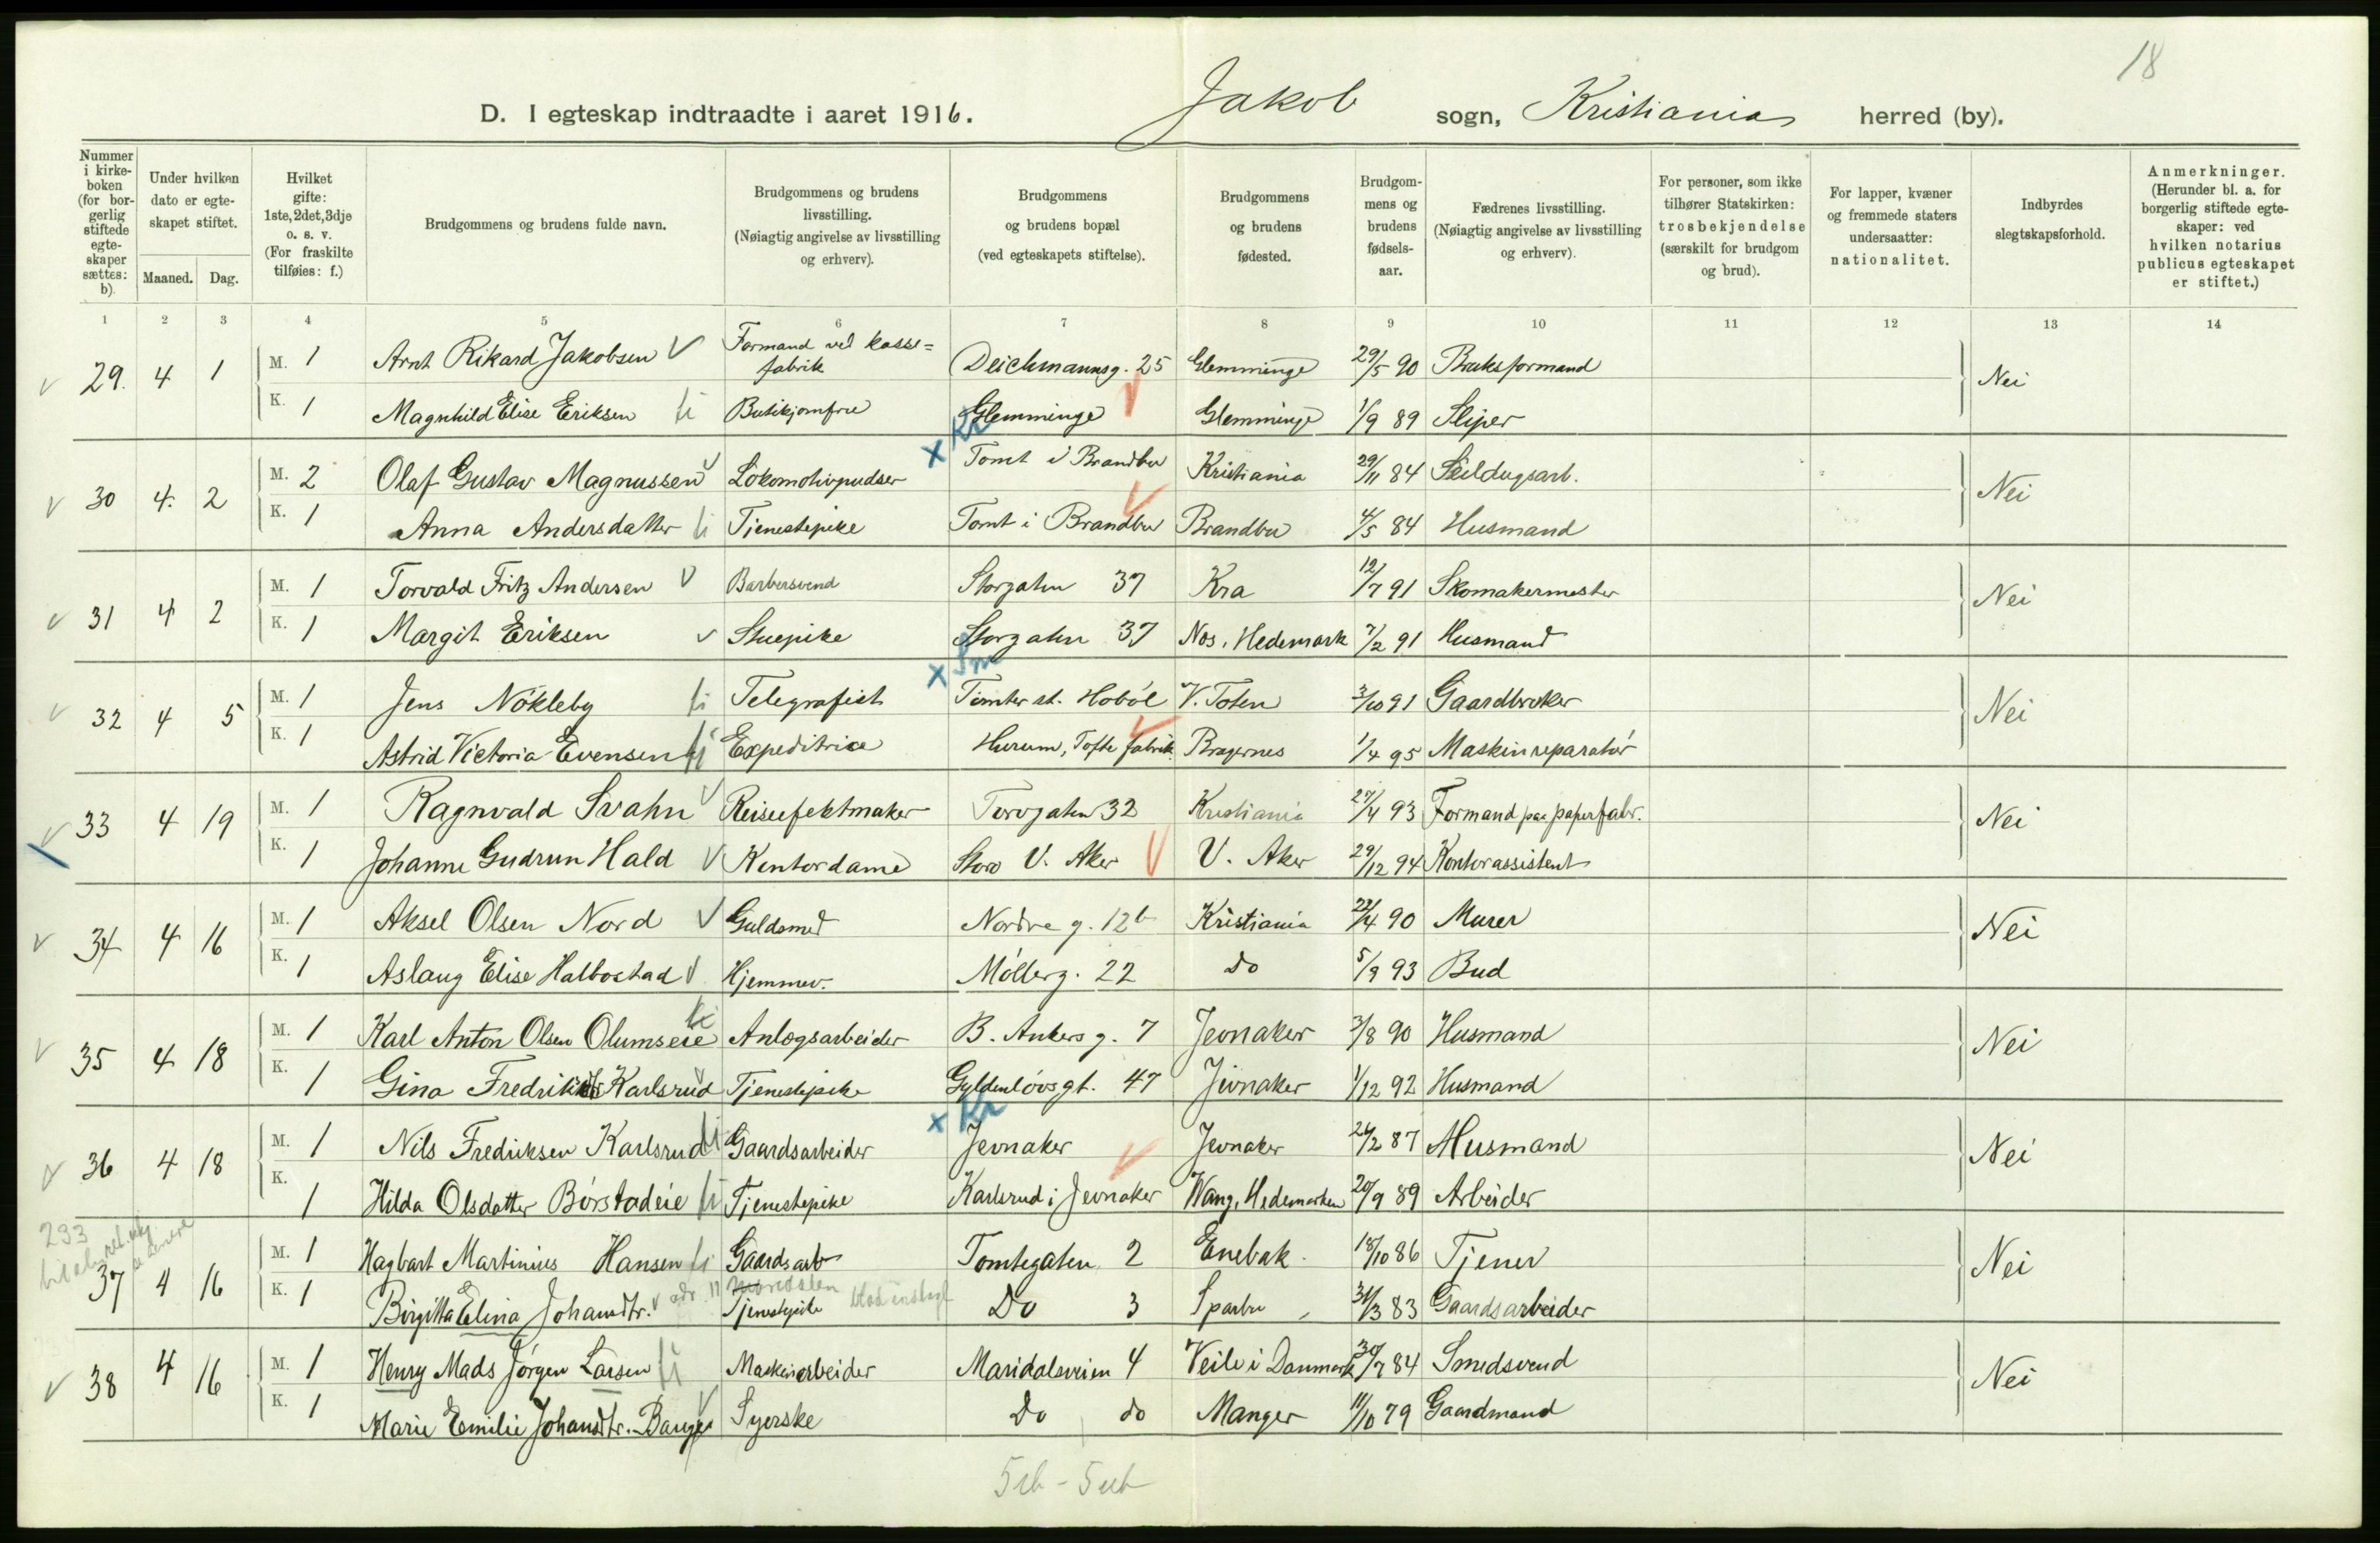 18
D. I egteskap indtraadte i aaret 1916. Jakob sogn, Kristiania herred (by).
Nummer i kirkeboken (for borgerlig stiftede egteskaper sættes: b).
Under hvilken dato er egteskapet stiftet.
Maaned. Dag.
Hvilket gifte: 1ste, 2det, 3dje o. s. v. (For fraskilte tilføies: f.)
Brudgommens og brudens fulde navn.
Brudgommens og brudens livsstilling. (Nøiagtig angivelse av livsstilling og erhverv).
Brudgommens og brudens bopæl (ved egteskapets stiftelse).
Brudgommens og brudens fødested.
Brudgommens og brudens fødselsaar.
Fædrenes livsstilling. (Nøiagtig angivelse av livsstilling og erhverv).
For personer, som ikke tilhører Statskirken: trosbekjendelse (særskilt for brudgom og brud).
For lapper, kvæner og fremmede staters undersaatter: nationalitet.
Indbyrdes slegtskapsforhold.
Anmerkninger. (Herunder bl. a. for borgerlig stiftede egteskaper: ved hvilken notarius publicus egteskapet er stiftet.)
1 2 3 4 5 6 7 8 9 10 11 12 13 14
29. 4 1 M. 1 Arnt Rikard Jakobsen Formand ved kassefabrik Deichmannsg. 25 Glemminge 29/5 90 Bruksformand Nei
K. 1 Magnhild Elise Eriksen Butikjomfru Glemminge Glemminge 1/9 89 Sliper
x Kr
30 4. 2 M. 2 Olaf Gustav Magnussen Lokomotivpudser Tomt i Brandbu Kristiania 29/11 84 Seildugsarb. Nei
K. 1 Anna Andersdatter Tjenestepike Tomt i Brandbu Brandbu 4/5 84 Husmand
31 4 2 M. 1 Torvald Fritz Andersen Barbersvend Storgaten 37 Kra 12/7 91 Skomakermester Nei
K. 1 Margit Eriksen Stuepike Storgaten 37 Nes. Hedemark 7/2 91 Husmand
x Sm
32 4 5 M. 1 Jens Nökleby Telegrafist Tomter st. Hoböl V. Toten 3/10 91 Gaardbruker Nei
K. 1 Astrid Victoria Evensen Expeditrice Hurum, Tofte fabrik Bragernes 1/4 95 Maskinreparatör
33 4 19 M. 1 Ragnvald Svahn Reiseefektmaker Torvgaten 32 Kristiania 27/4 93 Formand paa papirfabr. Nei
K. 1 Johanne Gudrun Hald Kontordame Storo V. Aker V. Aker 29/12 94 Kontorassistent
34 4 16 M. 1 Aksel Olsen Nord Guldsmed Nordre g. 12b Kristiania 22/4 90 Murer Nei
K. 1 Aslaug Elise Halbostad Hjemmev. Möllerg. 22 Do 5/9 93 Bud
35 4 18 M. 1 Karl Anton Olsen Olumseie Anlægsarbeider B. Ankers g. 7 Jevnaker 3/8 90 Husmand Nei
K. 1 Gina Fredriksdtr Karlsrud Tjenestepike Gyldenlövsgt. 47 Jevnaker 1/12 92 Husmand
x Kr
36 4 18 M. 1 Nils Fredriksen Karlsrud Gaardsarbeider Jevnaker Jevnaker 24/2 87 Husmand Nei
K. 1 Hilda Olsdatter Börstadeie Tjenestepike Karlsrud i Jevnaker Wang, Hedemarken 20/9 89 Arbeider
233
37 4 16 M. 1 Hagbart Martinius Hansen Gaardsarb Tomtegaten 2 Enebak. 18/10 86 Tjener Nei
K. 1 Birgitta Elina Johansdtr. Tjenestepike Do 3 Sparbu 31/3 83 Gaardsarbeider
38 4 16 M. 1 Henry Mads Jörgen Larsen Maskinarbeider Maridalsveien 4 Veile i Danmark 30/7 84 Smedsvend Nei
K. 1 Marie Emilie Johansdtr. Bauge Syerske Do do Manger 11/10 79 Gaardmand